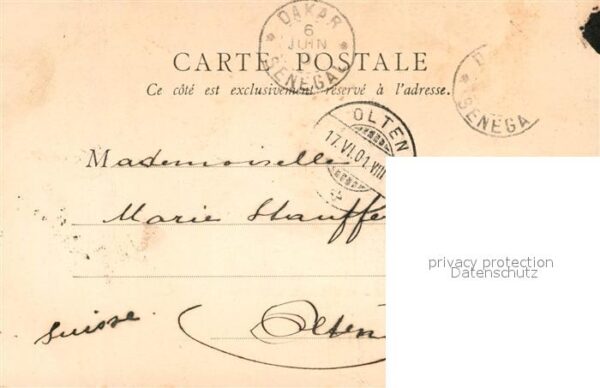 DAKAR
6
JUIN
SENEGAL
CARTE POSTALE
Ce côté est exclusivement réservé à l'adresse.
SENEGA
OLTEN
17.VI.01.VIII
Mademoiselle
Marie Stauffe
privacy protection
Datenschutz
Olten
Suisse.